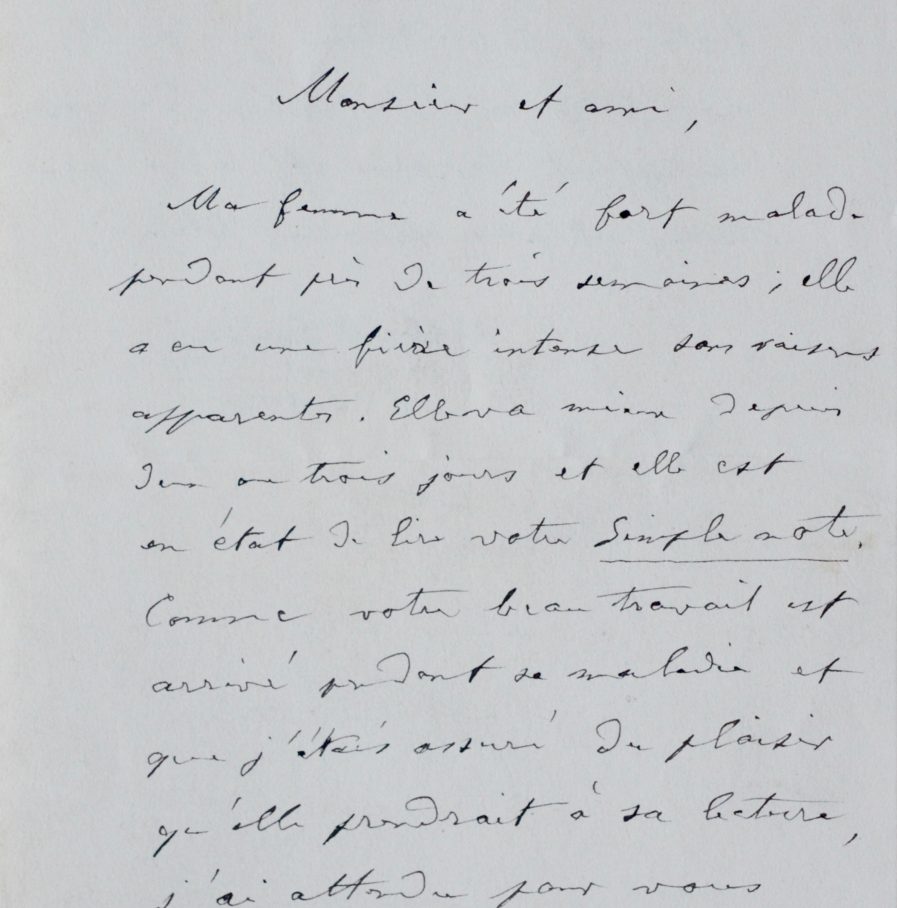 Monsieur et ami,
Ma femme a été fort malade
pendant près de trois semaines ; elle
a eu une fièvre intense sans raisons
apparentes. Elle va mieux depuis
deux ou trois jours et elle est
en état de lire votre Simple note.
Comme votre beau travail est
arrivé pendant sa maladie et
que j'étais assuré du plaisir
qu'elle prendrait à sa lecture,
j'ai attendu pour vous